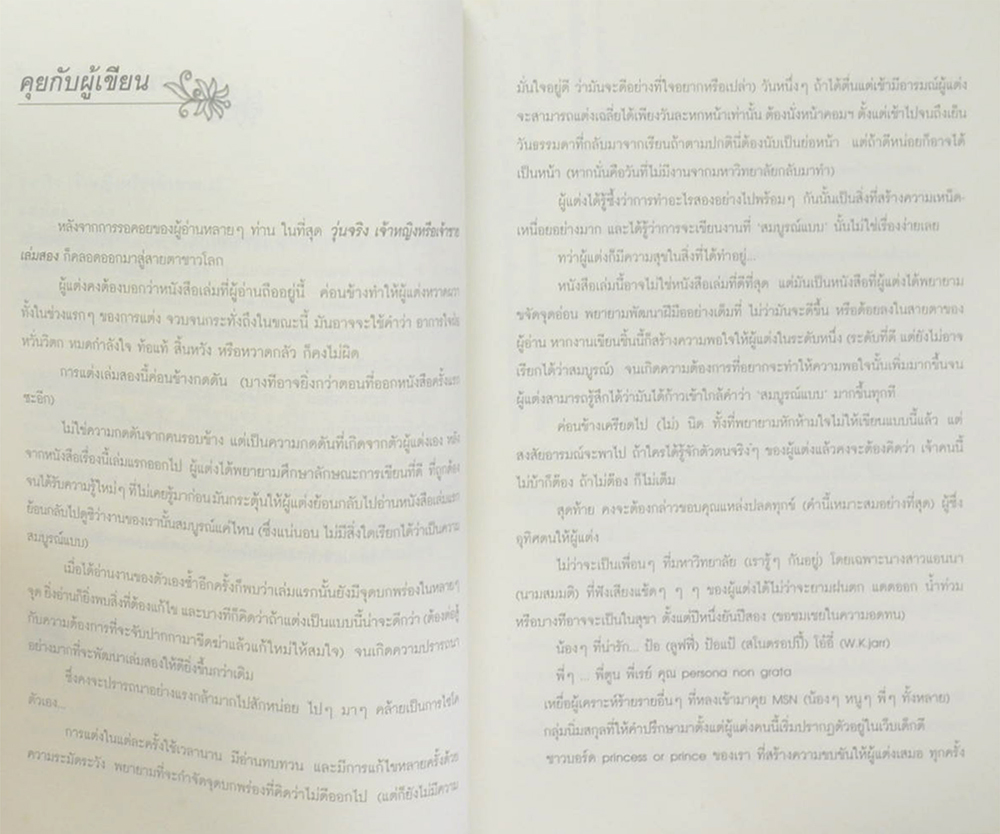 คุยกับผู้เขียน
หลังจากการรอคอยของผู้อ่านหลายๆ ท่าน ในที่สุด วุ่นจริง เจ้าหญิงหรือเจ้าชาย
เล่มสอง ก็คลอดออกมาสู่สายตาชาวโลก
ผู้แต่งคงต้องบอกว่าหนังสือเล่มที่ผู้อ่านถืออยู่นี้ ค่อนข้างทำให้ผู้แต่งหวาดผวา
ทั้งในช่วงแรกๆ ของการแต่ง จวบจนกระทั่งถึงในขณะนี้ มันอาจจะใช้คำว่า อาการใจฝ่อ
หวั่นวิตก หมดกำลังใจ ท้อแท้ สิ้นหวัง หรือหวาดกลัว ก็คงไม่ผิด
การแต่งเล่มสองนี้ค่อนข้างกดดัน (บางทีอาจยิ่งกว่าตอนที่ออกหนังสือครั้งแรก
ซะอีก)
ไม่ใช่ความกดดันจากคนรอบข้าง แต่เป็นความกดดันที่เกิดจากตัวผู้แต่งเอง หลัง
จากหนังสือเรื่องนี้เล่มแรกออกไป ผู้แต่งได้พยายามศึกษาลักษณะการเขียนที่ดี ที่ถูกต้อง
จนได้รับความรู้ใหม่ๆ ที่ไม่เคยรู้มาก่อน มันกระตุ้นให้ผู้แต่งย้อนกลับไปอ่านหนังสือเล่มแรก
ย้อนกลับไปดูซิว่างานของเรานั้นสมบูรณ์แค่ไหน (ซึ่งแน่นอน ไม่มีสิ่งใดเรียกได้ว่าเป็นความ
สมบูรณ์แบบ)
เมื่อได้อ่านงานของตัวเองซ้ำอีกครั้งก็พบว่าเล่มแรกนั้นยังมีจุดบกพร่องในหลายๆ
จุด ยิ่งอ่านก็ยิ่งพบสิ่งที่ต้องแก้ไข และบางทีก็คิดว่าถ้าแต่งเป็นแบบนี้น่าจะดีกว่า (ต้องต่อสู้
กับความต้องการที่จะจับปากกามาขีดฆ่าแล้วแก้ใหม่ให้สมใจ) จนเกิดความปรารถนา
อย่างมากที่จะพัฒนาเล่มสองให้ดียิ่งขึ้นกว่าเดิม
ซึ่งคงจะปรารถนาอย่างแรงกล้ามากไปสักหน่อย ไปๆ มาๆ คล้ายเป็นการ
ตัวเอง...
การแต่งในแต่ละครั้งใช้เวลานาน มีอ่านทบทวน และมีการแก้ไขหลายครั้งด้วย
ความระมัดระวัง พยายามที่จะกำจัดจุดบกพร่องที่คิดว่าไม่ดีออกไป (แต่ก็ยังไม่มีความ
มั่นใจอยู่ดี ว่ามันจะดีอย่างที่ใจอยากหรือเปล่า) วันหนึ่งๆ ถ้าได้ตื่นแต่เช้ามีอารมณ์ผู้แต่ง
จะสามารถแต่งเฉลี่ยได้เพียงวันละหกหน้าเท่านั้น ต้องนั่งหน้าคอมฯ ตั้งแต่เช้าไปจนถึงเย็น
วันธรรมดาที่กลับมาจากเรียนถ้าตามปกตินี่ต้องนับเป็นย่อหน้า แต่ถ้าดีหน่อยก็อาจได้
เป็นหน้า (หากนั่นคือวันที่ไม่มีงานจากมหาวิทยาลัยกลับมาทำ)
ผู้แต่งได้รู้ซึ้งว่าการทำอะไรสองอย่างไปพร้อมๆ กันนั้นเป็นสิ่งที่สร้างความเหน็ด-
เหนื่อยอย่างมาก และได้รู้ว่าการจะเขียนงานที่ 'สมบูรณ์แบบ' นั้นไม่ใช่เรื่องง่ายเลย
ทว่าผู้แต่งก็มีความสุขในสิ่งที่ได้ทำอยู่...
หนังสือเล่มนี้อาจไม่ใช่หนังสือเล่มที่ดีที่สุด แต่มันเป็นหนังสือที่ผู้แต่งได้พยายาม
ขจัดจุดอ่อน พยายามพัฒนาฝีมืออย่างเต็มที่ ไม่ว่ามันจะดีขึ้น หรือด้อยลงในสายตาของ
ผู้อ่าน หากงานเขียนชิ้นนี้ก็สร้างความพอใจให้ผู้แต่งในระดับหนึ่ง (ระดับที่ดี แต่ยังไม่อาจ
เรียกได้ว่าสมบูรณ์) จนเกิดความต้องการที่อยากจะทำให้ความพอใจนั้นเพิ่มมากขึ้นจน
ผู้แต่งสามารถรู้สึกได้ว่ามันได้ก้าวเข้าใกล้คำว่า 'สมบูรณ์แบบ' มากขึ้นทุกที
ค่อนข้างเครียดไป (ไม่) นิด ทั้งที่พยายามหักห้ามใจไม่ให้เขียนแบบนี้แล้ว แต่
สงสัยอารมณ์จะพาไป ถ้าใครได้รู้จักตัวตนจริงๆ ของผู้แต่งแล้วคงจะต้องคิดว่า เจ้าคนนี้
ไม่บ้าก็ต้อง ถ้าไม่ต้อง ก็ไม่เต็ม
สุดท้าย คงจะต้องกล่าวขอบคุณแหล่งปลดทุกข์ (คำนี้เหมาะสมอย่างที่สุด) ผู้ซึ่ง
อุทิศตนให้ผู้แต่ง
ไม่ว่าจะเป็นเพื่อนๆ ที่มหาวิทยาลัย (เรารู้ๆ กันอยู่) โดยเฉพาะนางสาวแอนนา
(นามสมมติ) ที่ฟังเสียงแช้ดๆ ๆ ๆ ของผู้แต่งได้ไม่ว่าจะยามฝนตก แดดออก น้ำท่วม
หรือบางทีอาจจะเป็นในสุขา ตั้งแต่ปีหนึ่งยันปีสอง (ขอชมเชยในความอดทน)
น้องๆ ที่น่ารัก... ป้อ (ลูฟฟี่) ป้อแป้ (สโนดรอปปี้) โอ๋อี๋ (W.K.jarr)
พี่ๆ ... พี่ตูน พี่เรย์ คุณ persona non grata
เหยื่อผู้เคราะห์ร้ายรายอื่นๆ ที่หลงเข้ามาคุย MSN (น้องๆ หนูๆ พี่ๆ ทั้งหลาย)
กลุ่มนิ่มสกุลที่ให้คำปรึกษามาตั้งแต่ผู้แต่งคนนี้เริ่มปรากฏตัวอยู่ในเว็บเด็กดี
ชาวบอร์ด princess or prince ของเรา ที่สร้างความขบขันให้ผู้แต่งเสมอ ทุกครั้ง